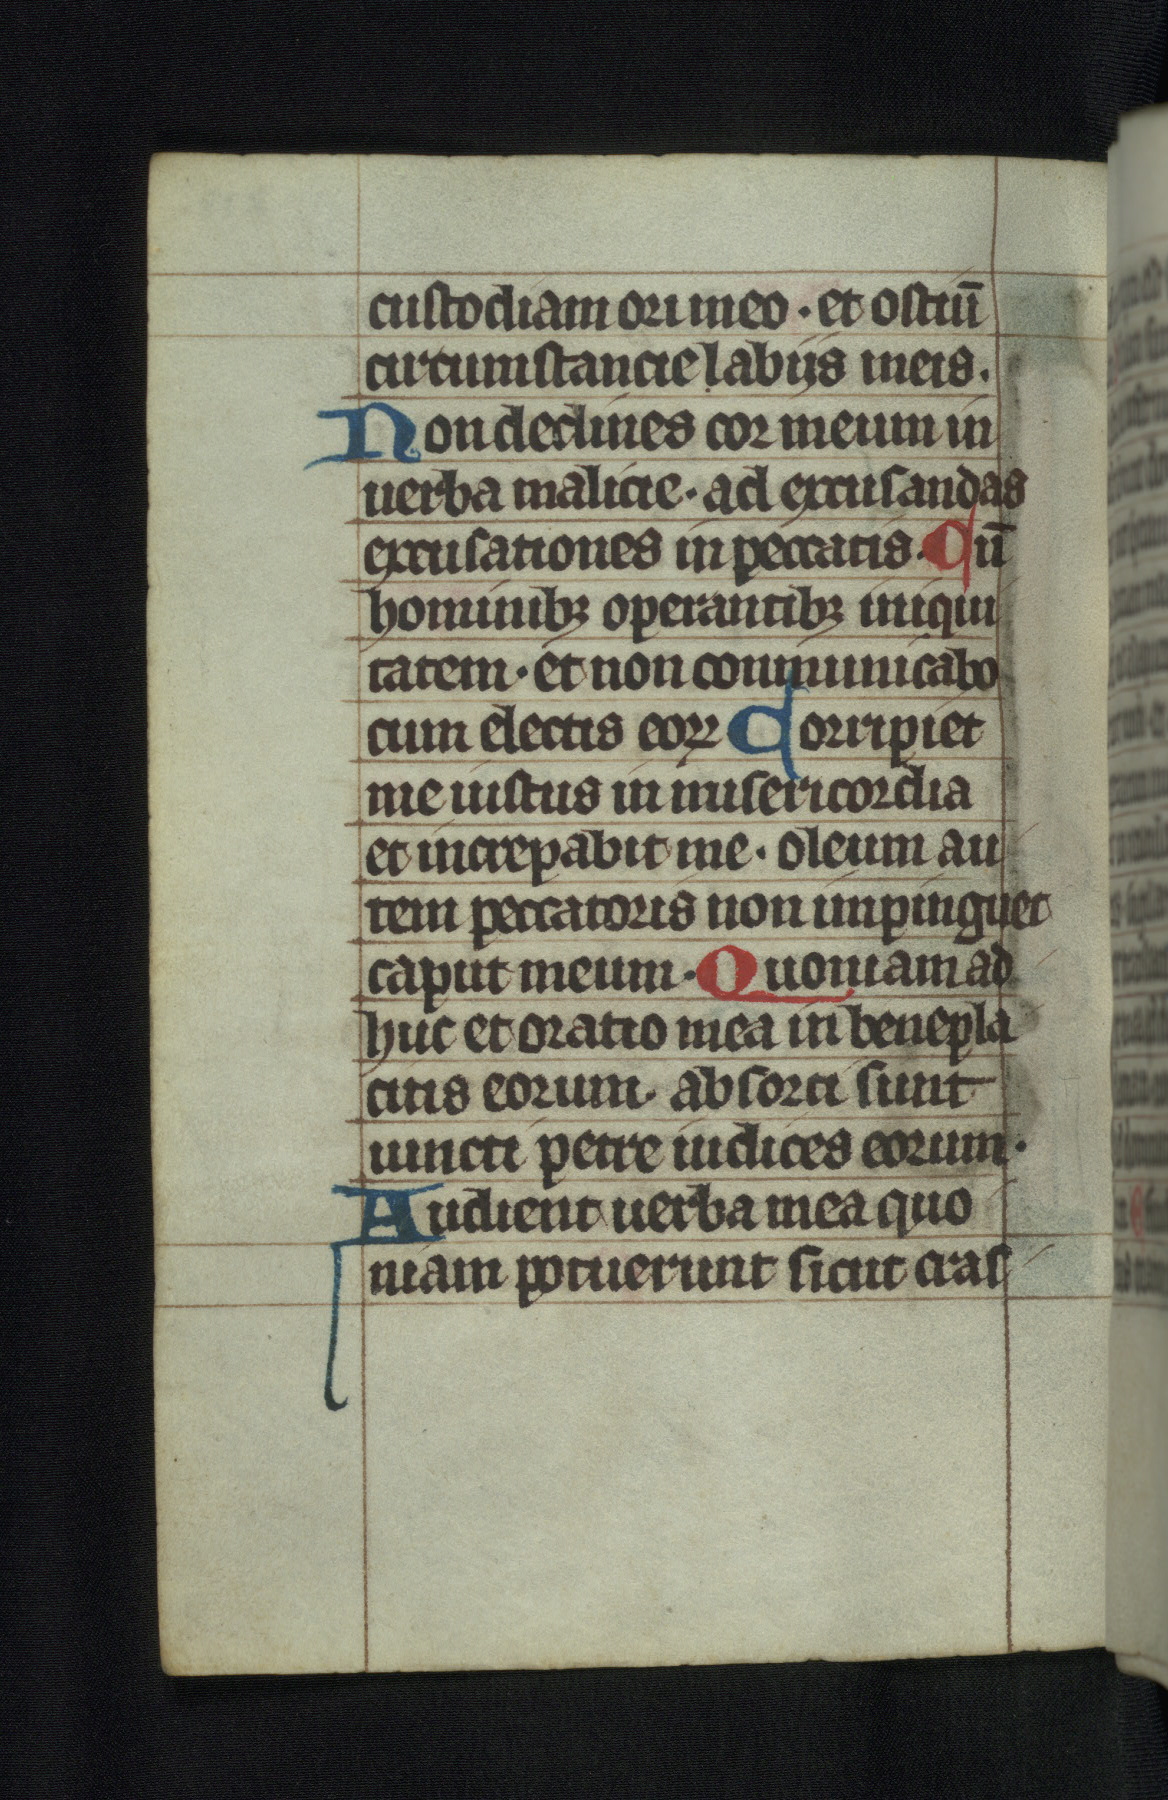 custodiam ori meo · et ostiū
circumstancie labijs meis.
Non declines cor meum in
uerba malicie · ad excusandas
excusationes in peccatis. Cū
hominibꝫ operantibꝫ iniqui
tatem · et non communicabo
cum electis eoꝝ Corripiet
me iustus in misericordia
et increpabit me · oleum au
tem peccatoris non impinguet
caput meum · Quoniam ad
huc et oratio mea in benepla
citis eorum · absorti sunt
iuncti petre iudices eorum ·
Audient uerba mea quo
niam potuerunt sicut cras